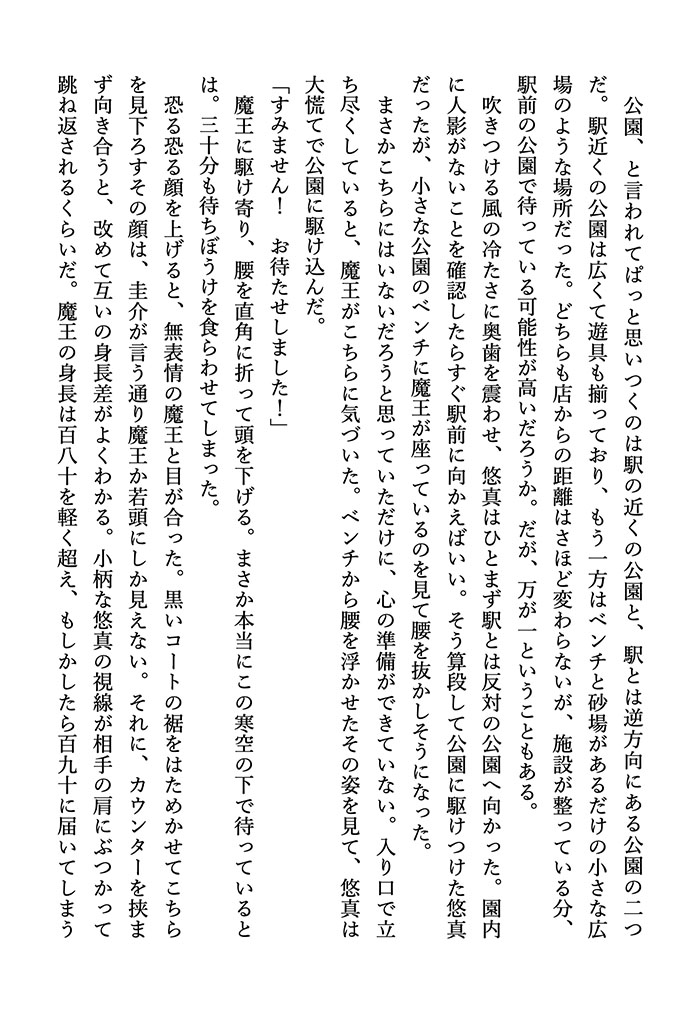 公園、と言われてぱっと思いつくのは駅の近くの公園と、駅とは逆方向にある公園の二つ
だ。駅近くの公園は広くて遊具も揃っており、もう一方はベンチと砂場があるだけの小さな広
場のような場所だった。どちらも店からの距離はさほど変わらないが、施設が整っている分、
駅前の公園で待っている可能性が高いだろうか。だが、万が一ということもある。
　吹きつける風の冷たさに奥歯を震わせ、悠真はひとまず駅とは反対の公園へ向かった。園内
に人影がないことを確認したらすぐ駅前に向かえばいい。そう算段して公園に駆けつけた悠真
だったが、小さな公園のベンチに魔王が座っているのを見て腰を抜かしそうになった。
　まさかこちらにはいないだろうと思っていただけに、心の準備ができていない。入り口で立
ち尽くしていると、魔王がこちらに気づいた。ベンチから腰を浮かせたその姿を見て、悠真は
大慌てで公園に駆け込んだ。
「すみません！　お待たせしました！」
　魔王に駆け寄り、腰を直角に折って頭を下げる。まさか本当にこの寒空の下で待っていると
は。三十分も待ちぼうけを食らわせてしまった。
　恐る恐る顔を上げると、無表情の魔王と目が合った。黒いコートの裾をはためかせてこちら
を見下ろすその顔は、圭介が言う通り魔王か若頭にしか見えない。それに、カウンターを挟ま
ず向き合うと、改めて互いの身長差がよくわかる。小柄な悠真の視線が相手の肩にぶつかって
跳ね返されるくらいだ。魔王の身長は百八十を軽く超え、もしかしたら百九十に届いてしまう